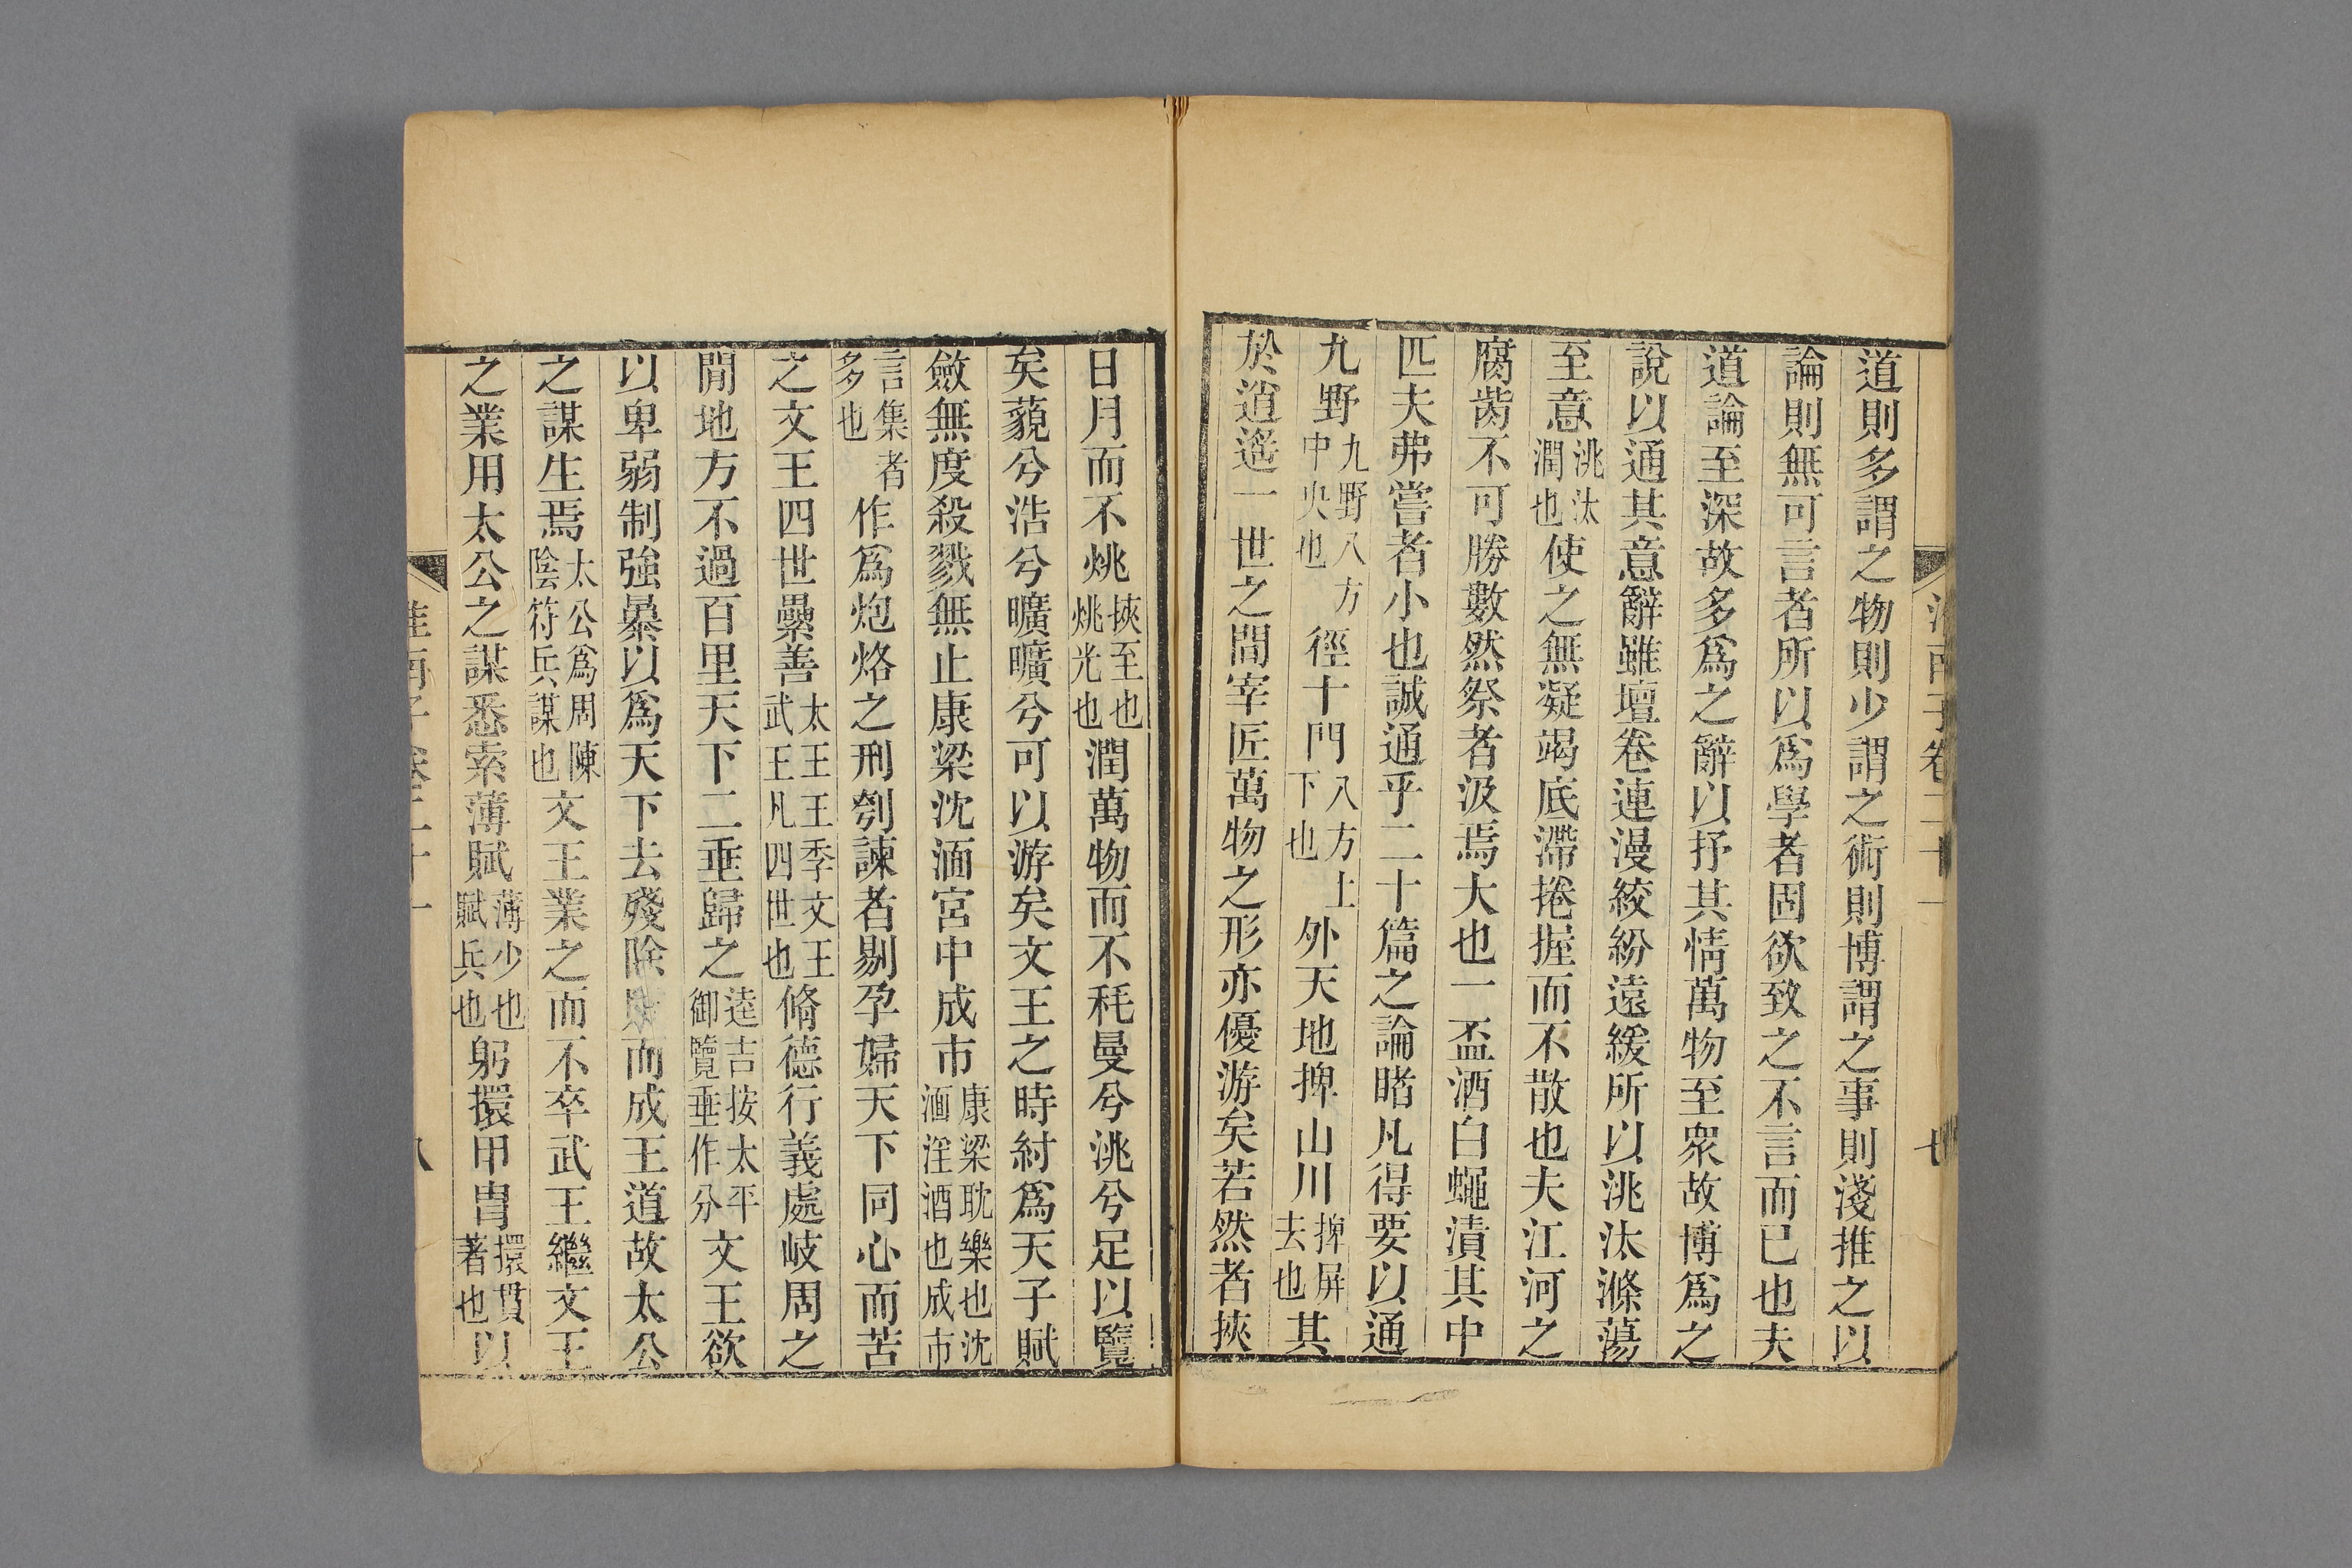 淮南子卷二十一 七
道則多謂之物則少謂之術則博謂之事則淺推之以
論則無可言者所以爲學者固欲致之不言而已也夫
道論至深故多爲之辭以抒其情萬物至衆故博爲之
說以通其意辭雖壇卷連漫絞紛遠緩所以洮汰滌蕩
至意洮汰潤也使之無凝竭底滯捲握而不散也夫江河之
腐胔不可勝數然祭者汲焉大也一盃酒白蠅漬其中
匹夫弗嘗者小也誠通乎二十篇之論睹凡得要以通
九野九野八方中央也徑十門八方上下也外天地捭山川捭屏去也其
於逍遙一世之閒宰匠萬物之形亦優游矣若然者挾
日月而不烑挾至也烑光也潤萬物而不秏曼兮洮兮足以覽
矣藐兮浩兮曠曠兮可以游矣文王之時紂爲天子賦
斂無度殺戮無止康梁沈湎宮中成市康梁耽樂也沈湎淫酒也成市
言集者多也作爲炮烙之刑刳諫者剔孕婦天下同心而苦
之文王四世纍善太王王季文王武王凡四世也脩德行義處岐周之
閒地方不過百里天下二垂歸之逵吉按太平御覽垂作分文王欲
以卑弱制強暴以爲天下去殘除而成王道故太公
之謀生焉太公爲周陳陰符兵謀也文王業之而不卒武王繼文王
之業用太公之謀悉索薄賦薄少也賦兵也躬擐甲胄擐貫著也以
淮南子卷二十一 八